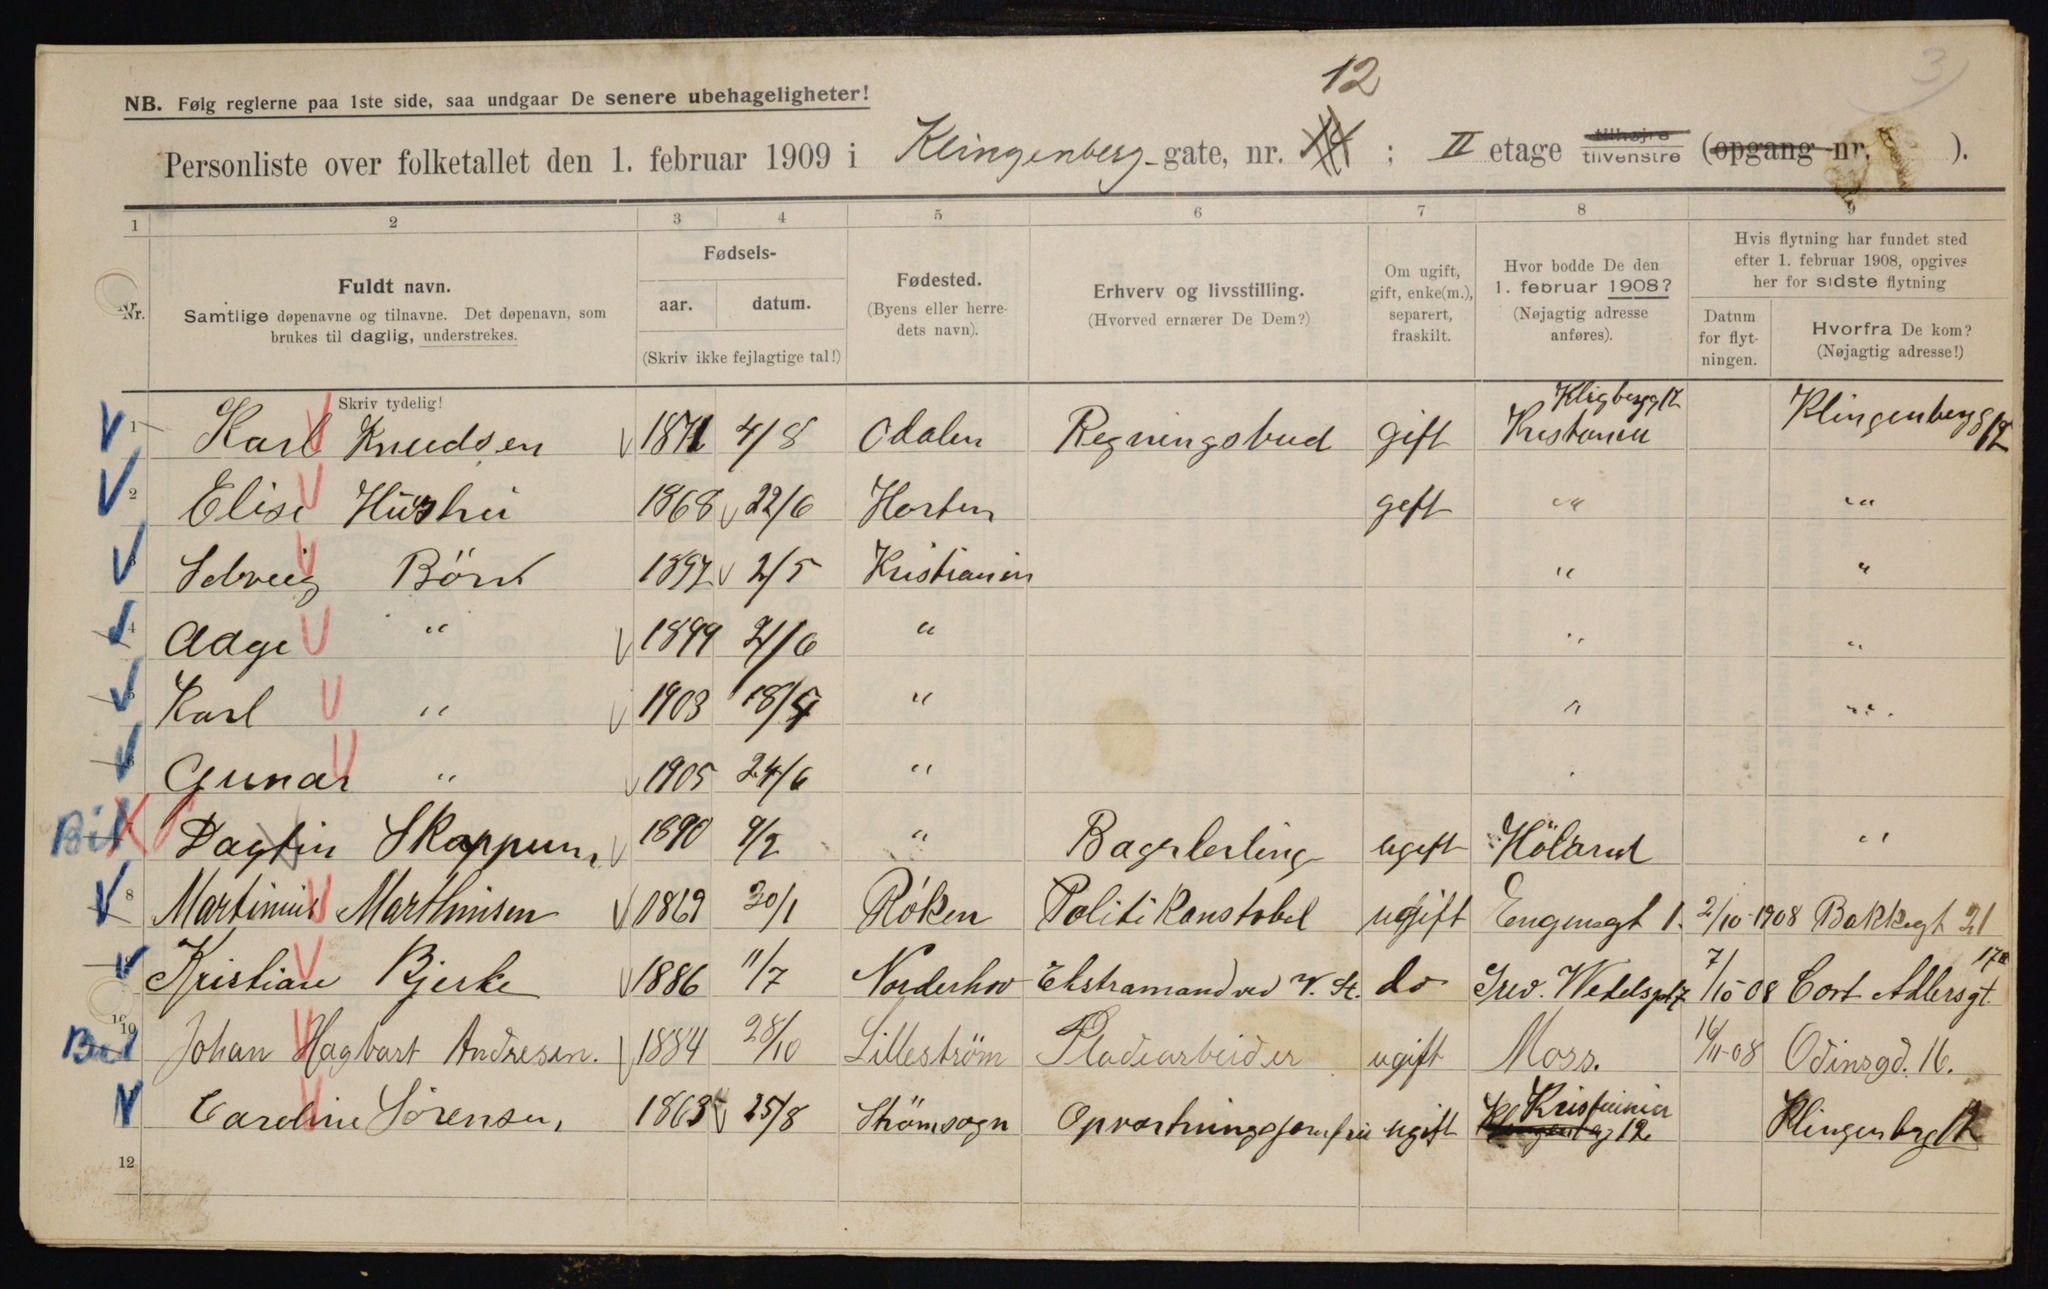 3
12
NB. Følg reglerne paa 1ste side, saa undgaar De senere ubehageligheter!
Personliste over folketallet den 1. februar 1909 i Klingenberg-gate, nr. ; II etage tilhøjre tilvenstre (opgang nr. ).
1 2 3 4 5 6 7 8 9
Nr.
Fuldt navn.
Samtlige døpenavne og tilnavne. Det døpenavn, som
brukes til daglig, understrekes.
Fødsels-
aar. datum.
(Skriv ikke fejlagtige tal!)
Fødested.
(Byens eller herre-
dets navn).
Erhverv og livsstilling.
(Hvorved ernærer De Dem?)
Om ugift,
gift, enke(m.),
separert,
fraskilt.
Hvor bodde De den
1. februar 1908?
(Nøjagtig adresse
anføres).
Hvis flytning har fundet sted
efter 1. februar 1908, opgives
her for sidste flytning
Datum
for flyt-
ningen.
Hvorfra De kom?
(Nøjagtig adresse!)
Skriv tydelig!
1 Karl Knudsen 1871 4/8 Odalen Regningsbud gift Kligberg 12 Kristania Klingenberg 12
2 Elise Hustru 1868 22/6 Horten geft " "
Solveig Børn 1897 2/5 Kristianien " "
4 Aage " 1899 21/6 " " "
Karl " 1903 18/4 " " "
Gunar " 1905 24/6 "
Dagfin Skappum 1890 9/2 " Bagerlerling ugift Höland "
8 Martinius Marthinsen 1869 30/1 Røken Politikonstabel ugift Engensgt 1. 2/10-1908 Bakkegt 21
Kristian Bjerke 1886 11/7 Norderhov Ekstramand ved V. St. do Grev. Wedelspl 7 7/10 08 Cort Adlersgt. 17
10 Johan Hagbart Andresen. 1884 28/10 Lilleström Pladearbeider ugift Moss. 16/11-08 Odinsgd. 16.
Caroline Sörensen, 1863 25/8 Strömsogn Opvartningsjomfru ugift Kristiania 12 Klingenberg 12
12